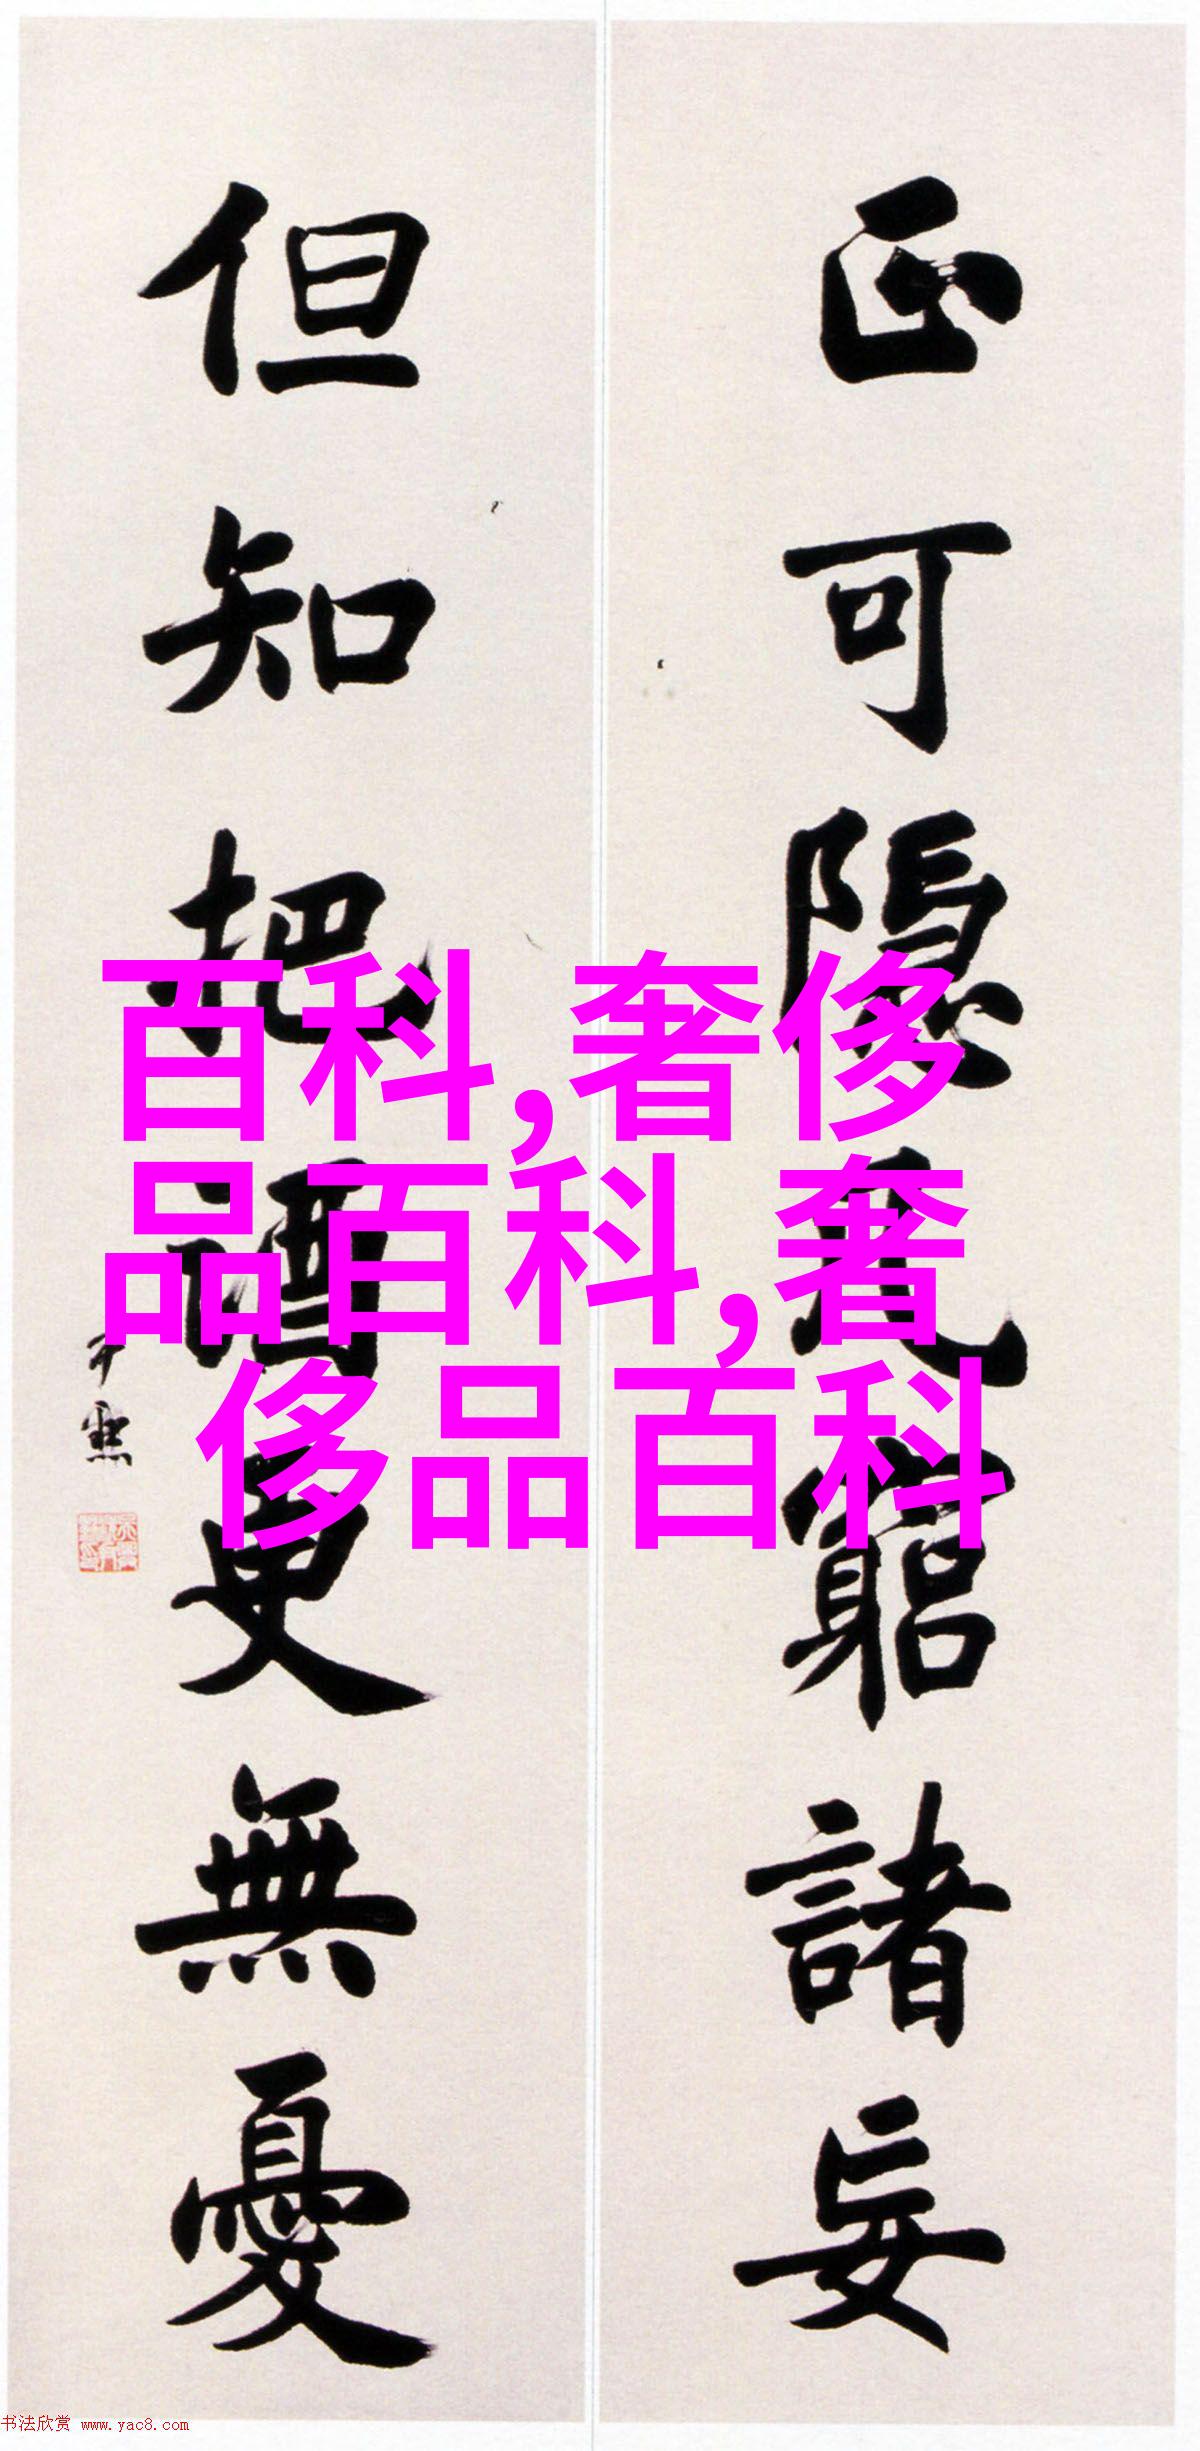 正可隱几窮諸妄
但知把酒更無憂
尹默
百科,奢侈
品百科,奢
侈品百科
书法欣赏 www.yac8.com